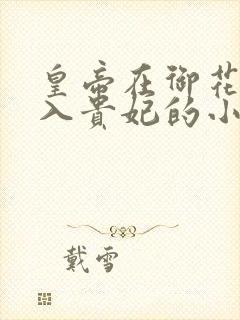 皇帝在御花
入贵妃的小
戴雪